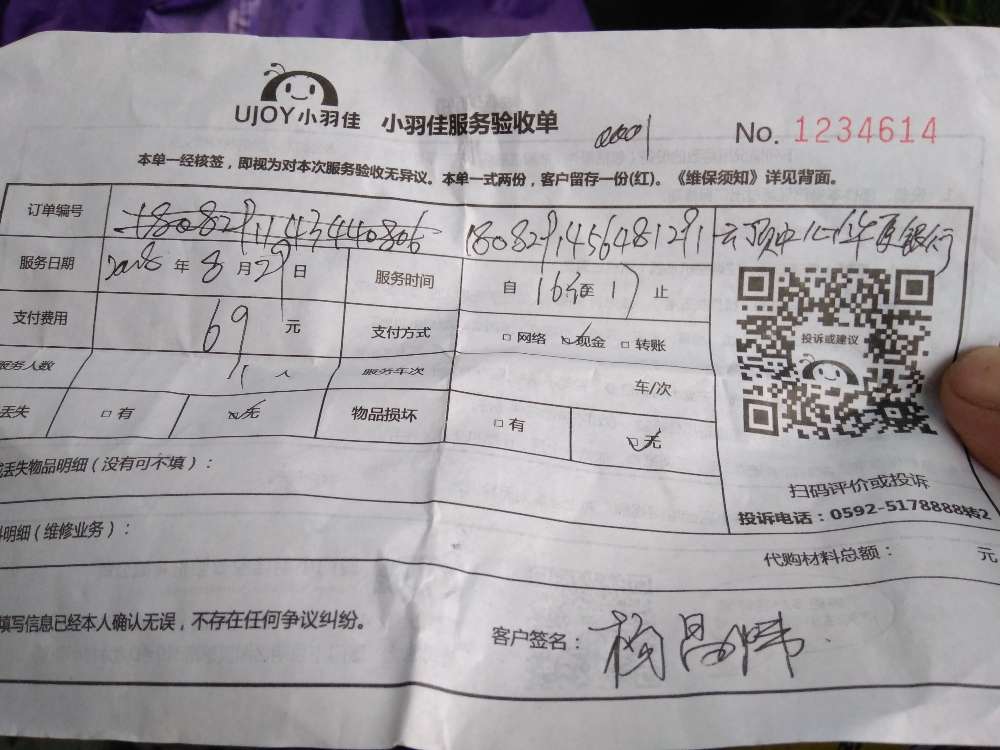 UJOY小羽佳 小羽佳服务验收单 0001 No. 1234614
本单一经核签，即视为对本次服务验收无异议。本单一式两份，客户留存一份(红)。《维保须知》详见背面。
订单编号 180829145648129 云顶中心华夏银行
服务日期 2018 年 8 月 29 日 服务时间 自 16 至 17 止
支付费用 69 元 支付方式 □网络 ☑现金 □转账
投诉或建议
服务人数 1 人 服务车次 车/次
丢失 □有 ☑无 物品损坏 □有 ☑无
丢失物品明细（没有可不填）：
扫码评价或投诉
投诉电话：0592-5178888转2
料明细（维修业务）：
代购材料总额： 元
填写信息已经本人确认无误，不存在任何争议纠纷。
客户签名： 杨昌炜